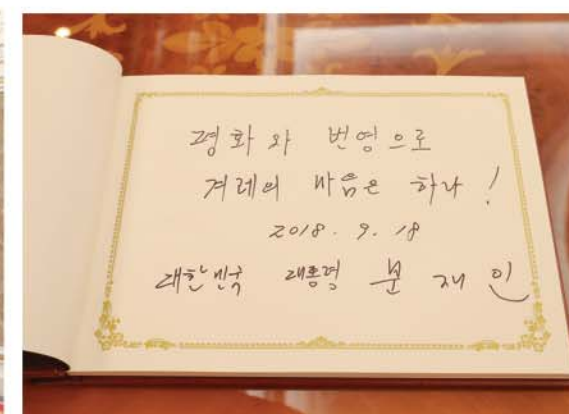 평화와 번영으로
겨레의 마음은 하나!
2018. 9. 18
대한민국 대통령 문재인